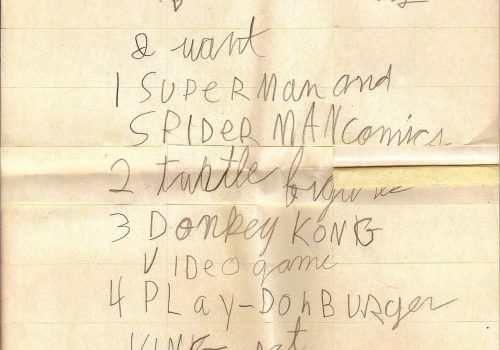 I want
1 SUPeRMan and
SPIDER MAN comics
2 turtle
3 DonKey KONG
VIDeo game
4 PLay-Doh BURger
KING set